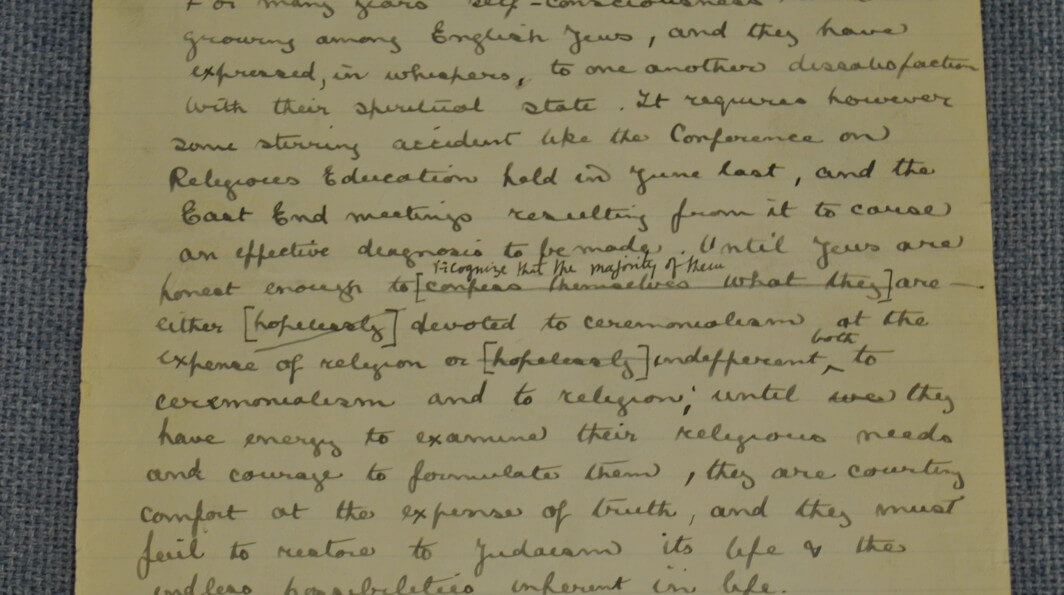 For many years self-consciousness
growing among English Jews, and they have
expressed, in whispers, to one another dissatisfaction
with their spiritual state. It requires however
some stirring accident like the Conference on
Religious Education held in June last, and the
East End meetings resulting from it to cause
an effective diagnosis to be made. Until Jews are
recognize that the majority of them
honest enough to [confess themselves what they] are —
either [hopelessly] devoted to ceremonialism at the
both
expense of religion or [hopelessly] indifferent, to
ceremonialism and to religion; until we they
have energy to examine their religious needs
and courage to formulate them, they are courting
comfort at the expense of truth, and they must
fail to restore to Judaism its life & the
endless possibilities inherent in life.